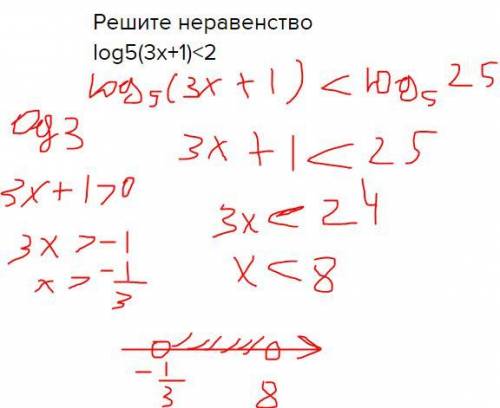 Решите неравенство
log5(3x+1)<2
log₅(3x + 1) < log₅25
ОДЗ
3x+1>0
3x > -1
x > -1/3
3x + 1 < 25
3x < 24
x < 8
-1/3
8